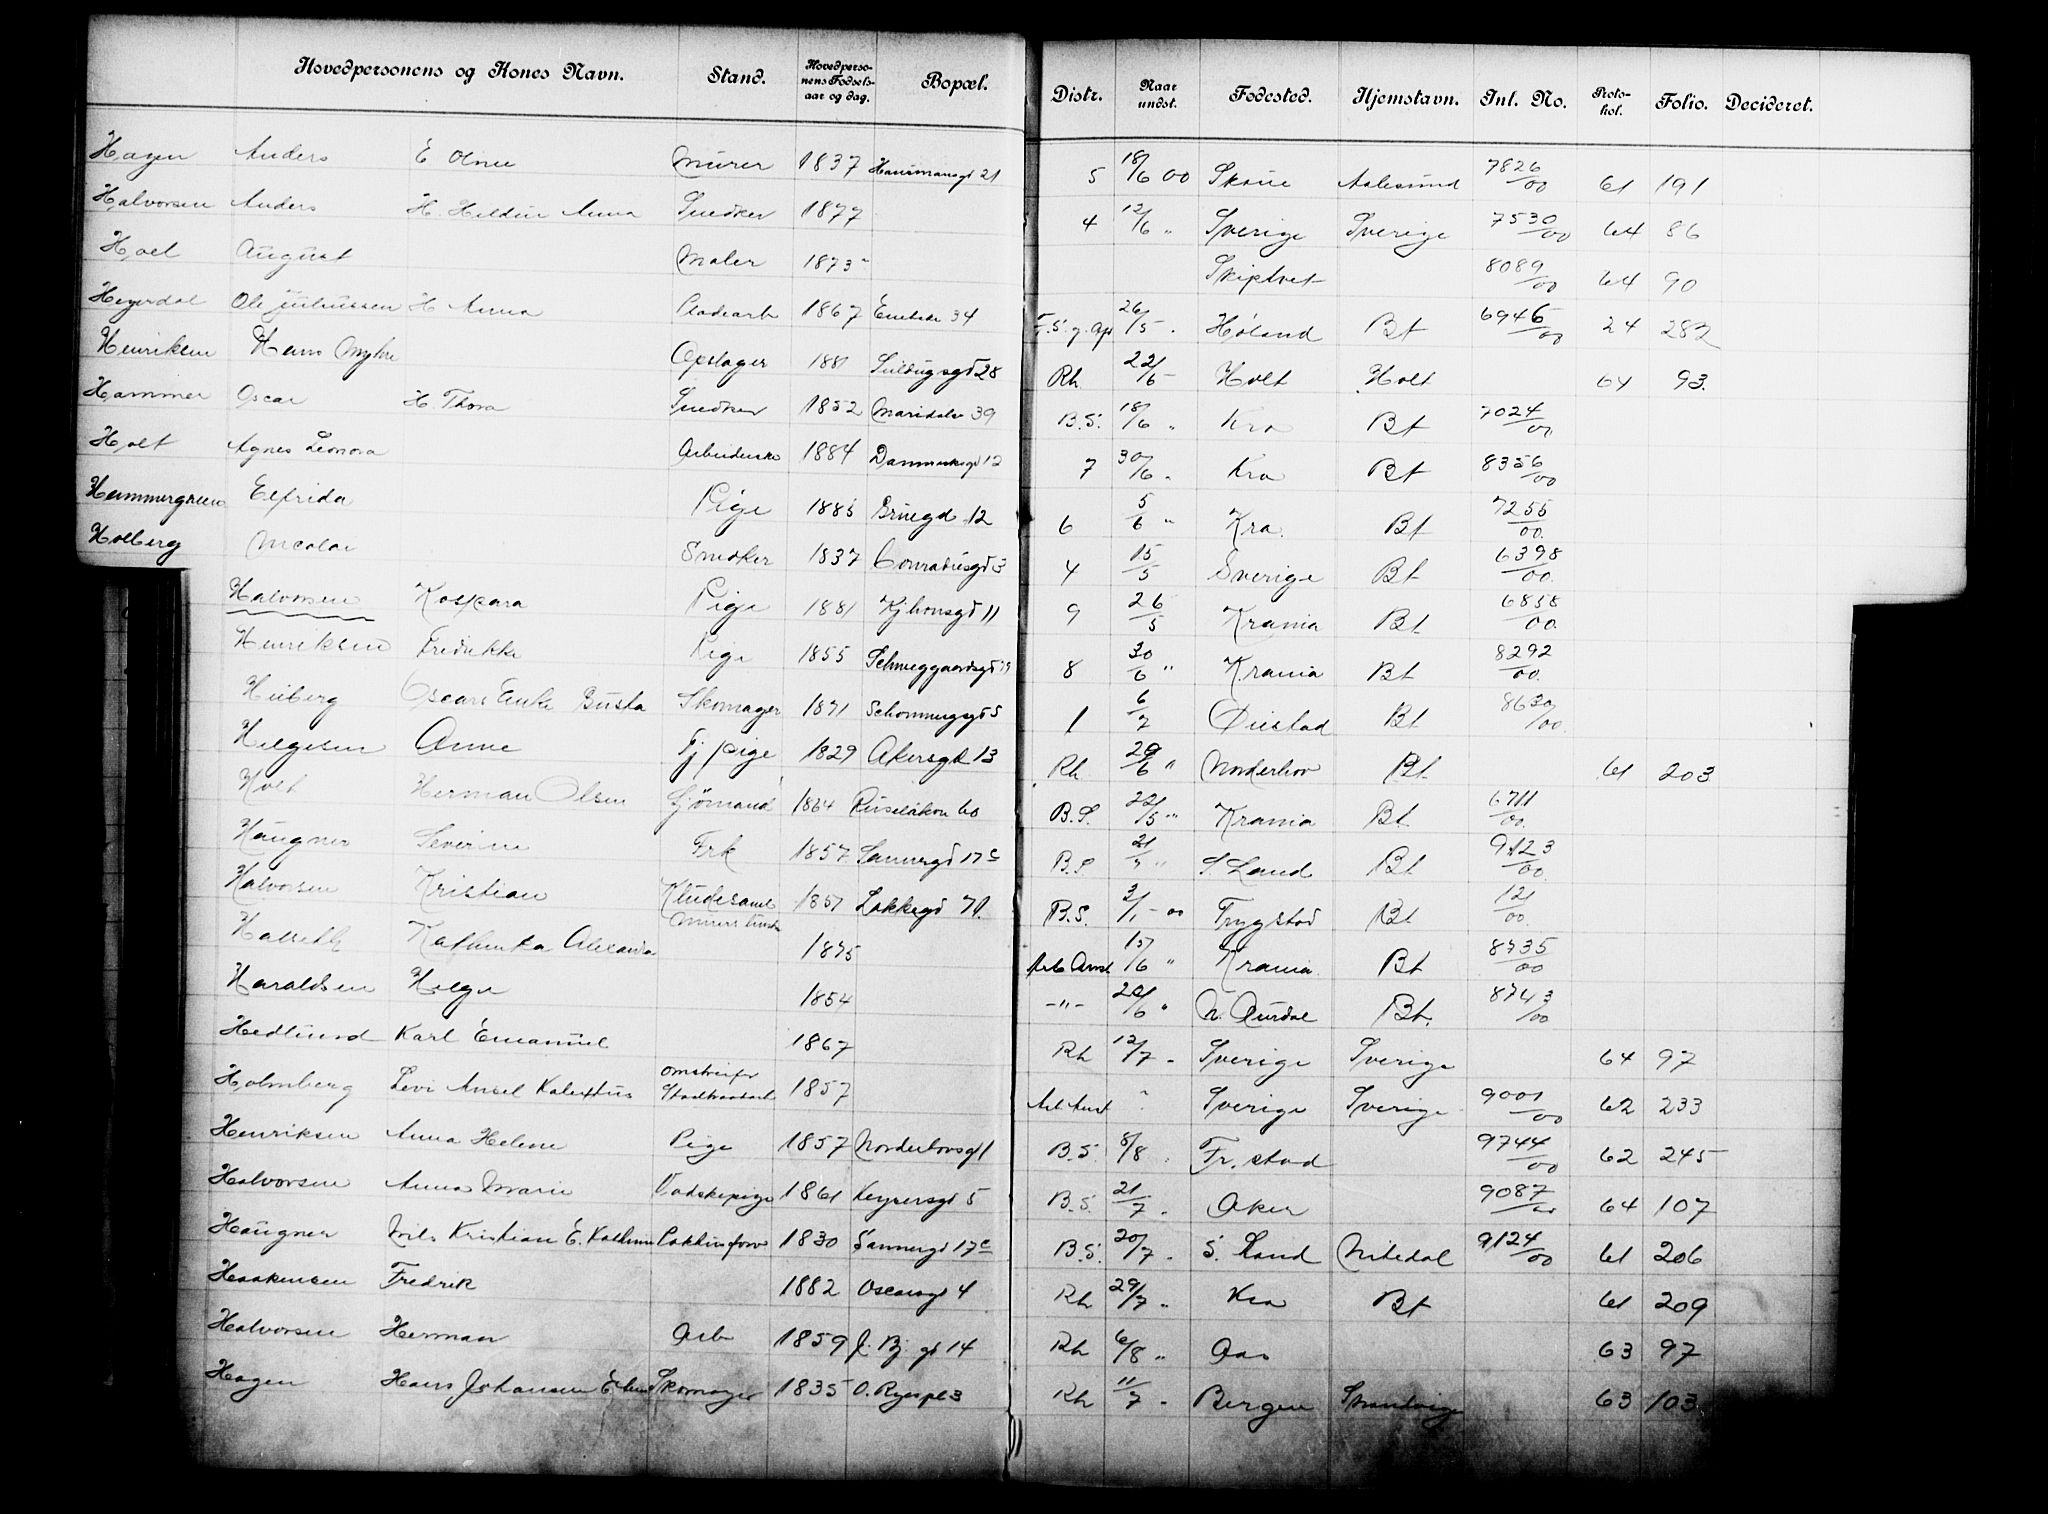 Hovedpersonens og Kones Navn. Stand. Hovedpersonens Fødselsaar og dag. Bopæl. Distr. Naar undst. Fødested. Hjemstavn. Inl. No. Protokol. Folio. Decideret.
Hagen Anders E Oline Murer 1837 Hausmansgd 21 5 18/6 00 Skoue Aalesund 7826/00 61 191
Halvorsen Anders H. Anna Snedker 1877 4 12/6 " Sverige Sverige 7530/00 64 86
Hoel August Maler 1873 Skiptvet 8089/00 64 90
Heyerdal Ole Juliussen H Anna Pladearb 1867 34 26/5 Høland Bt 6946/00 24 282
Henriksen Hans Myhre Opslager 1881 28 Rh 22/6 Holt Holt 64 93.
Hammer Oscar H. Thora Snedker 1852 Maridalsv 39 B.S. 18/6 " Kra Bt 7024/00
Holt Agnes Leonora Arbeiderske 1884 Danmarksgd 12 7 30/6 Kra Bt 8356/00
Hammergreen Elfrida Pige 1885 Bruegd 12 6 5/6 " Kra. Bt 7255/00
Holberg Nicolai Snedker 1837 Conradisgd 3 4 15/5 Sverige Bt 6398/00
Halvorsen Kaspara Pige 1881 Kjhonsgd 11 9 26/5 Krania Bt 6858/00
Henriksen Fredrikke Pige 1855 8 30/6 " Krania Bt 8292/00
Heiberg Oscars Enke Busta Skomager 1871 5 1 6/7 Øiestad Bt 8630/00
Helgesen Anne Tj pige 1829 Akersgd 13 Rh 29/6 " Norderhov Bt 61 203
Holt Herman Olsen Sjømand 1864 Ruseløkvn 60 B.S. 22/5 " Krania Bt 6711/00
Haugner Severine Frk 1857 Sannergd 17c B.S 21/7 " S Land Bt 9123/00
Halvorsen Kristian Kludesaml 1857 Lakkegd 71. B.S. 3/1 - 00 Trygstad Bt 121/00
Kathinka 1875 15/6 " Krania Bt 8735/00
Haraldsen Helge 1854 -"- 22/6 " N. Aurdal Bt. 8743/00
Hedlund Karl Emanuel 1867 Rh 12/7 Sverige Sverige 64 97
Holmberg Levi Ansel Kalixtus omstreifer 1857 Sverige Sverige 9001/00 62 233
Henriksen Anna Helene Pige 1857 Norderhovsgd 1 B.S. 8/8 Fr.stad 9744/00 62 245
Halvorsen Anna Marie Vadskepige 1861 Keysersgd 5 B.S. 21/7 Aker 9087/00 64 107
Haugner Nils Kristian E. 1830 Sannergd 17c B.S. 20/7 S. Land Nitedal 9124/00 61 206
Haakensen Fredrik 1882 Oscarsgd 4 Rh 29/7 " Kra Bt 61 209
Halvorsen Herman Arb 1859 J. Bj. gd 14 Rh 6/8 " Aas 63 97
Hagen Hans Johansen Skomager 1835 O. Ryespl 3 Rh 11/7 Bergen 63 103